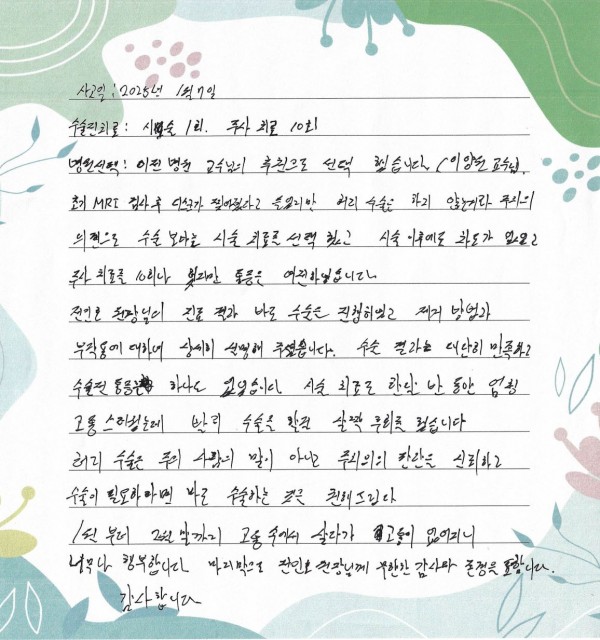 사고일 : 2025년 1월 7일
수술전치료 : 시술 1회. 주사 치료 10회
병원선택 : 이전 병원 교수님의 추천으로 선택 했습니다. (이양원 교수님.
초기 MRI 검사후 디스크가 찢어졌다고 들었지만 허리 수술은 하지 않는거라 주위의
의견으로 수술 보다는 시술 치료를 선택 했고 시술 이후에도 차도가 없었고
주사 치료를 10회나 했지만 통증은 여전하였습니다
전인호 원장님의 진료 결과 바로 수술은 진행하였고 제거 방법과
부작용에 대하여 상세히 설명해 주셨습니다. 수술 결과는 대단히 만족하고
수술전 통증은 하나도 없습니다 시술 치료로 한달 반 동안 엄청
고통 스러웠는데 빨리 수술을 할걸 살짝 후회도 됩니다
허리 수술은 주위 사람의 말이 아니고 주치의의 판단을 신뢰하고
수술이 필요하다면 바로 수술하는 것을 권해드립니다
1월 부터 2월 말까지 고통 속에서 살다가 고통이 없어지니
너무나 행복합니다. 마지막으로 전인호 원장님께 무한한 감사와 존경을 표합니다.
감사합니다